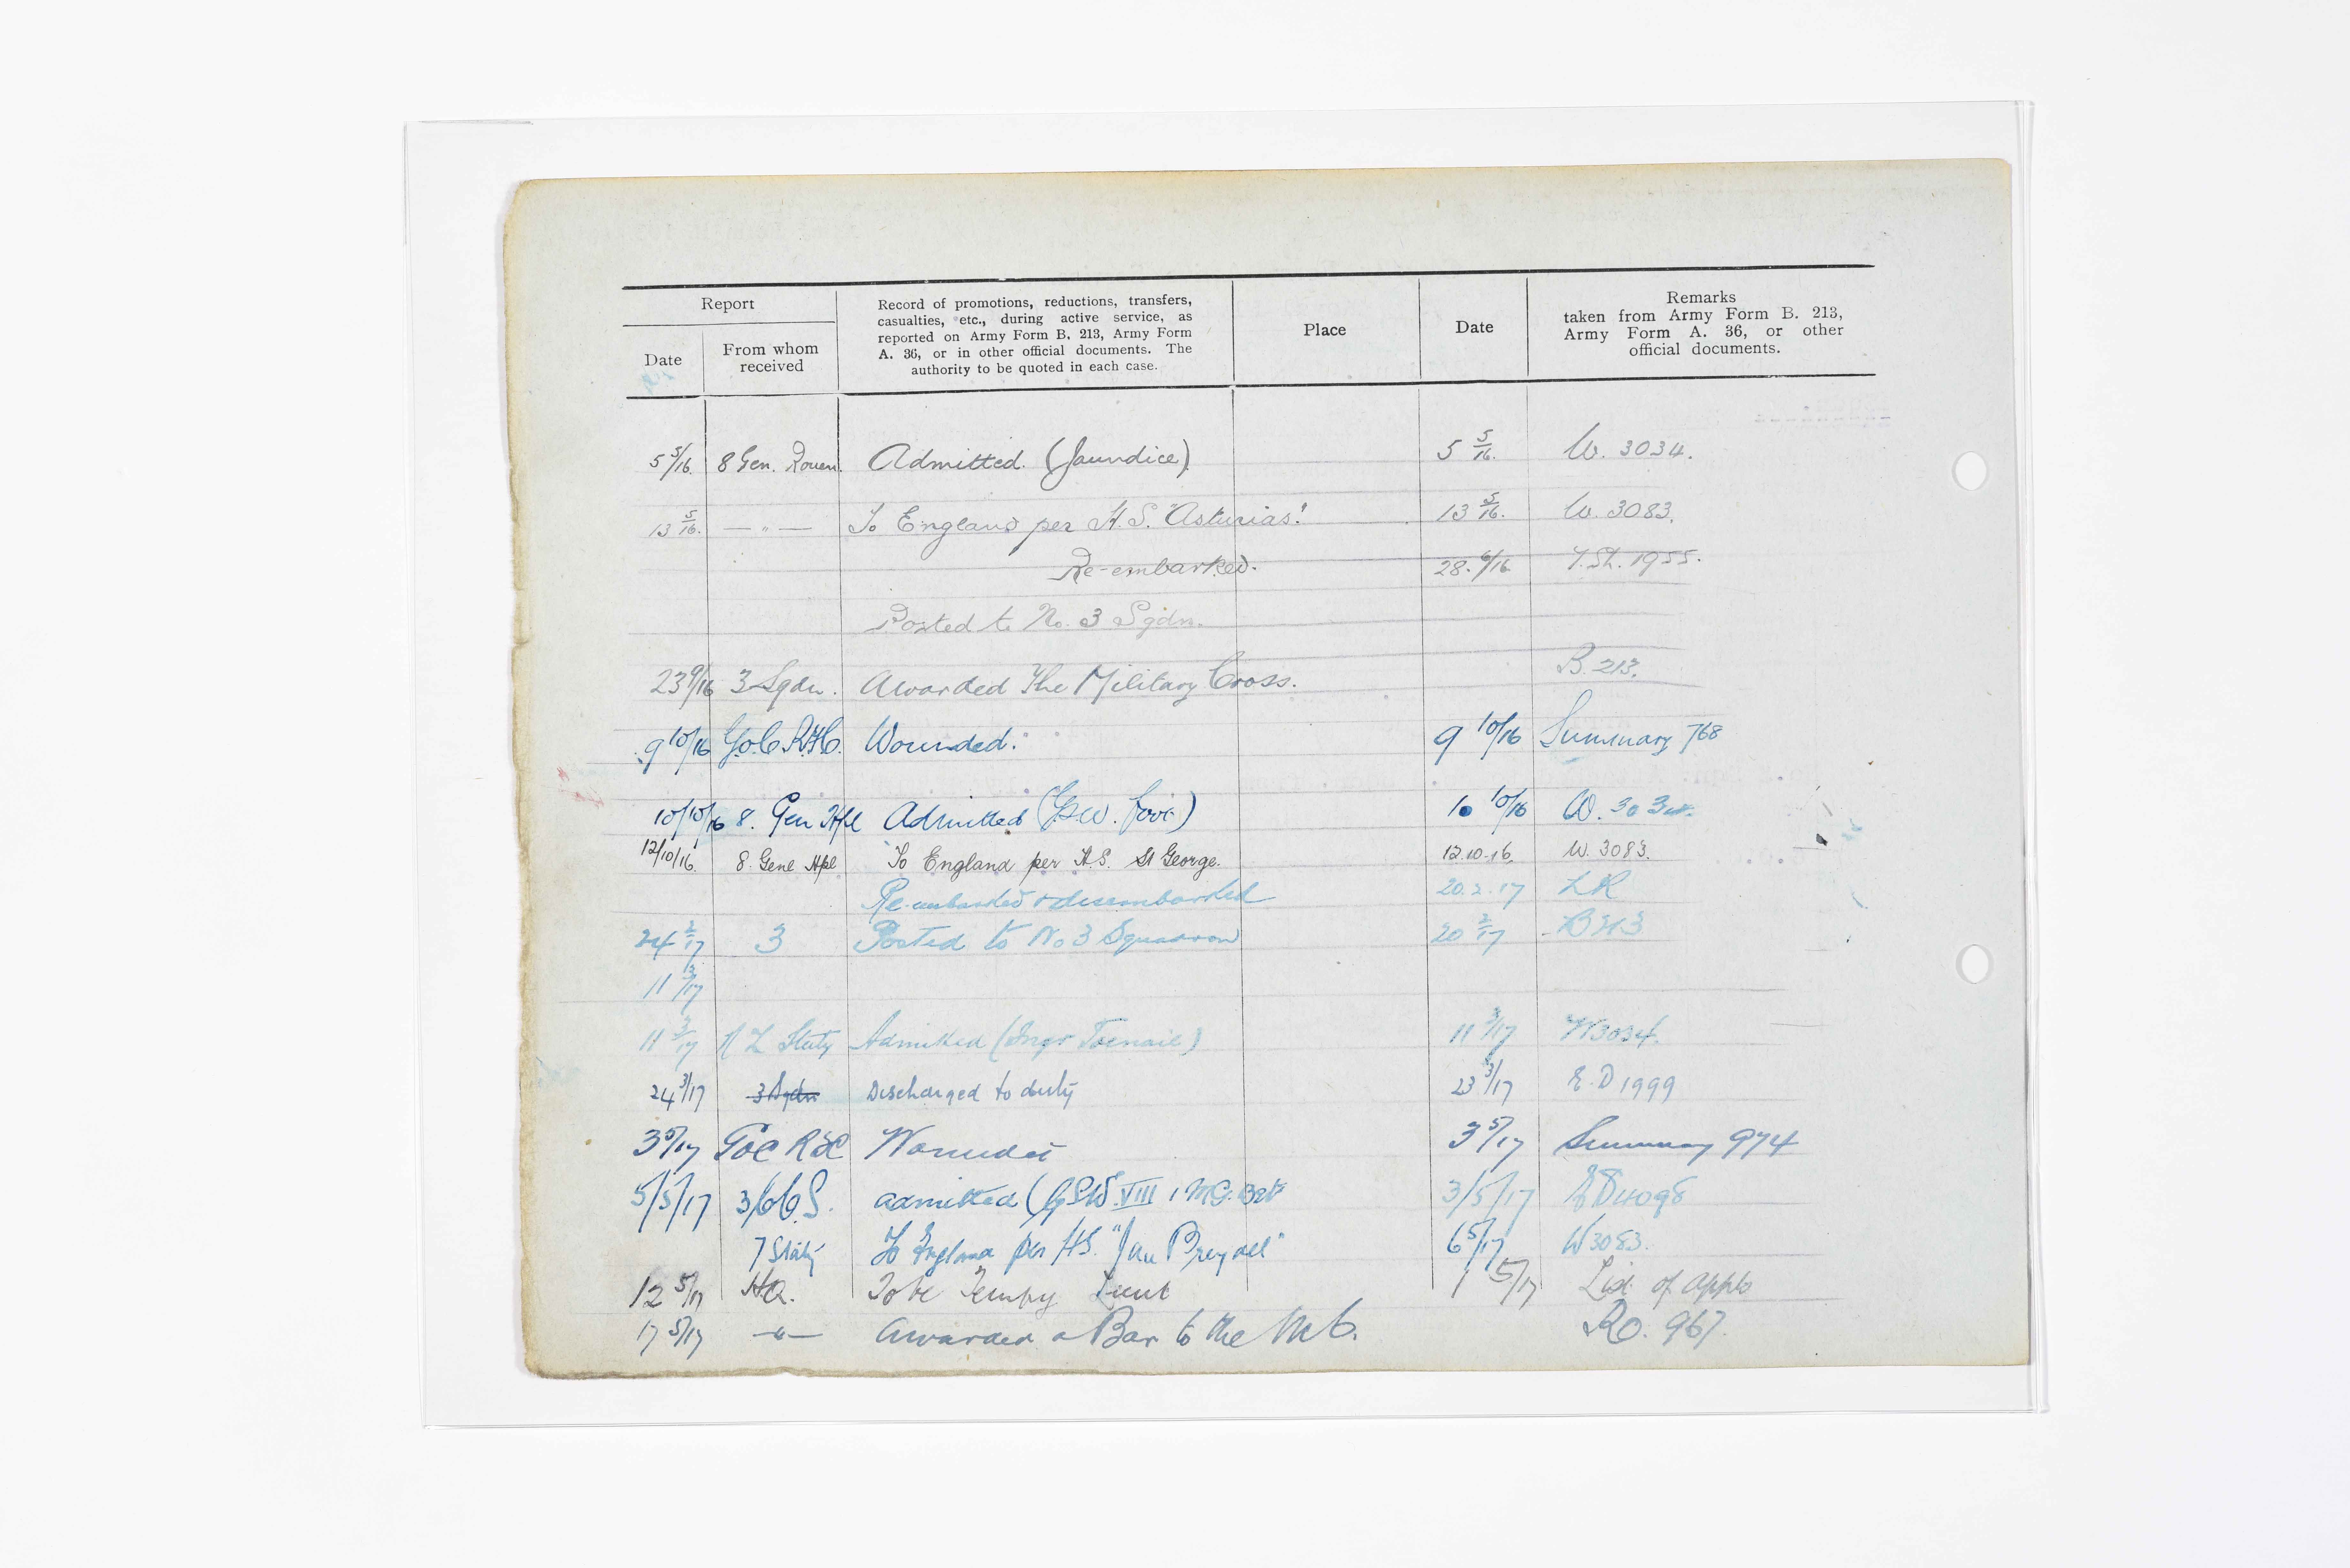 Report
Date
From whom
received
Record of promotions, reductions, transfers,
casualties, etc., during active service, as
reported on Army Form B. 213, Army Form
A. 36, or in other official documents. The
authority to be quoted in each case.
Place
Date
Remarks
taken from Army Form B. 213,
Army Form A. 36, or other
official documents.
5 5/16. 8 Gen. Rouen. Admitted. (Jaundice) 5 5/16. W. 3034.
13 5/16. — " — To England per H.S. "Asturias". 13 5/16. W. 3083.
Re-embarked. 28. 6/16.
Posted to No. 3 Sqdn.
23 9/16 3 Sqdn. Awarded The Military Cross. B. 213.
9 10/16 G.O.C. R.F.C. Wounded. 9 10/16 Summary 768
10/10/16 8. Gen Hpl Admitted (GSW. foot) 10 10/16 W. 3034.
12/10/16. 8. Genl Hpl To England per H.S. St George. 12.10.16. W. 3083.
Re-embarked & disembarked 20.2.17 LR
24 2/17 3 Posted to No 3 Squadron 20 2/17 B213
11 3/17
11 3/17 Admitted (Ingr Toenail) 11 3/17 W3034.
24 3/17 3 Sqdn Discharged to duty 23 3/17 E.D 1999
3 5/17 GOC RFC Wounded 3 5/17 Summary 974
5/5/17 3/C.C.S. admitted (GSW. VIII 3/5/17
7 Staty To England per HS. 6 5/17 W3083.
12 5/17 HQ. To be Tempy Lieut 1 5/17 List of appts
17 5/17 — " — Awarded a Bar to the M.C. RO. 967.